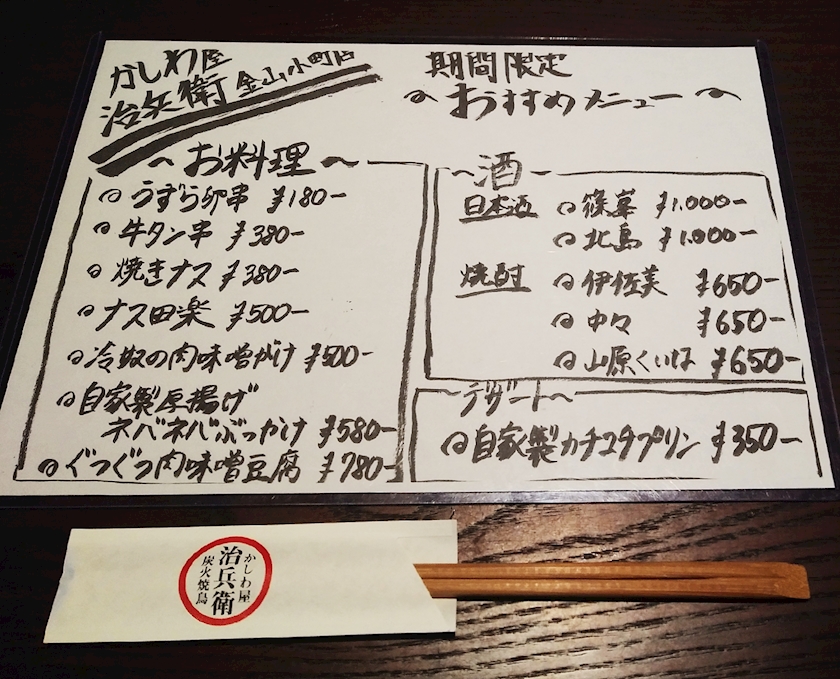 かしわ屋
治兵衛 金山小町店
期間限定
おすすめメニュー
〜お料理〜
うずら卵串 ¥180-
牛タン串 ¥380-
焼きナス ¥380-
ナス田楽 ¥500-
冷奴の肉味噌がけ ¥500-
自家製厚揚げ
ネバネバぶっかけ ¥580-
ぐつぐつ肉味噌豆腐 ¥780-
〜酒〜
日本酒 篠峯 ¥1.000-
北島 ¥1.000-
焼酎 伊佐美 ¥650-
中々 ¥650-
山原くいな ¥650-
〜デザート〜
自家製カチコチプリン ¥350-
かしわ屋
治兵衛
炭火焼鳥